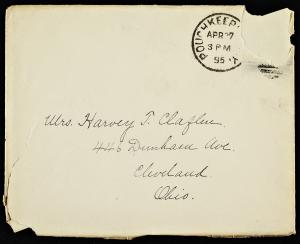 POUGHKEEP
APR 27
3 PM
95
Mrs. Harvey T. Claflin.
446 Dunham Ave.
Cleveland
Ohio.